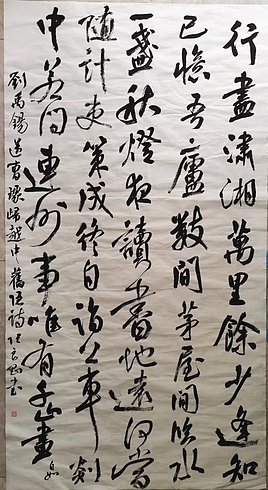 行盡瀟湘萬里餘少逢知
己憶吾廬數間茅屋間臨水
一盞秋燈夜讀書地遠何當
隨計吏策成終自詣公車剡
中若問連州事唯有千山畫不如
劉禹錫送曹璩歸越中舊隱詩 書